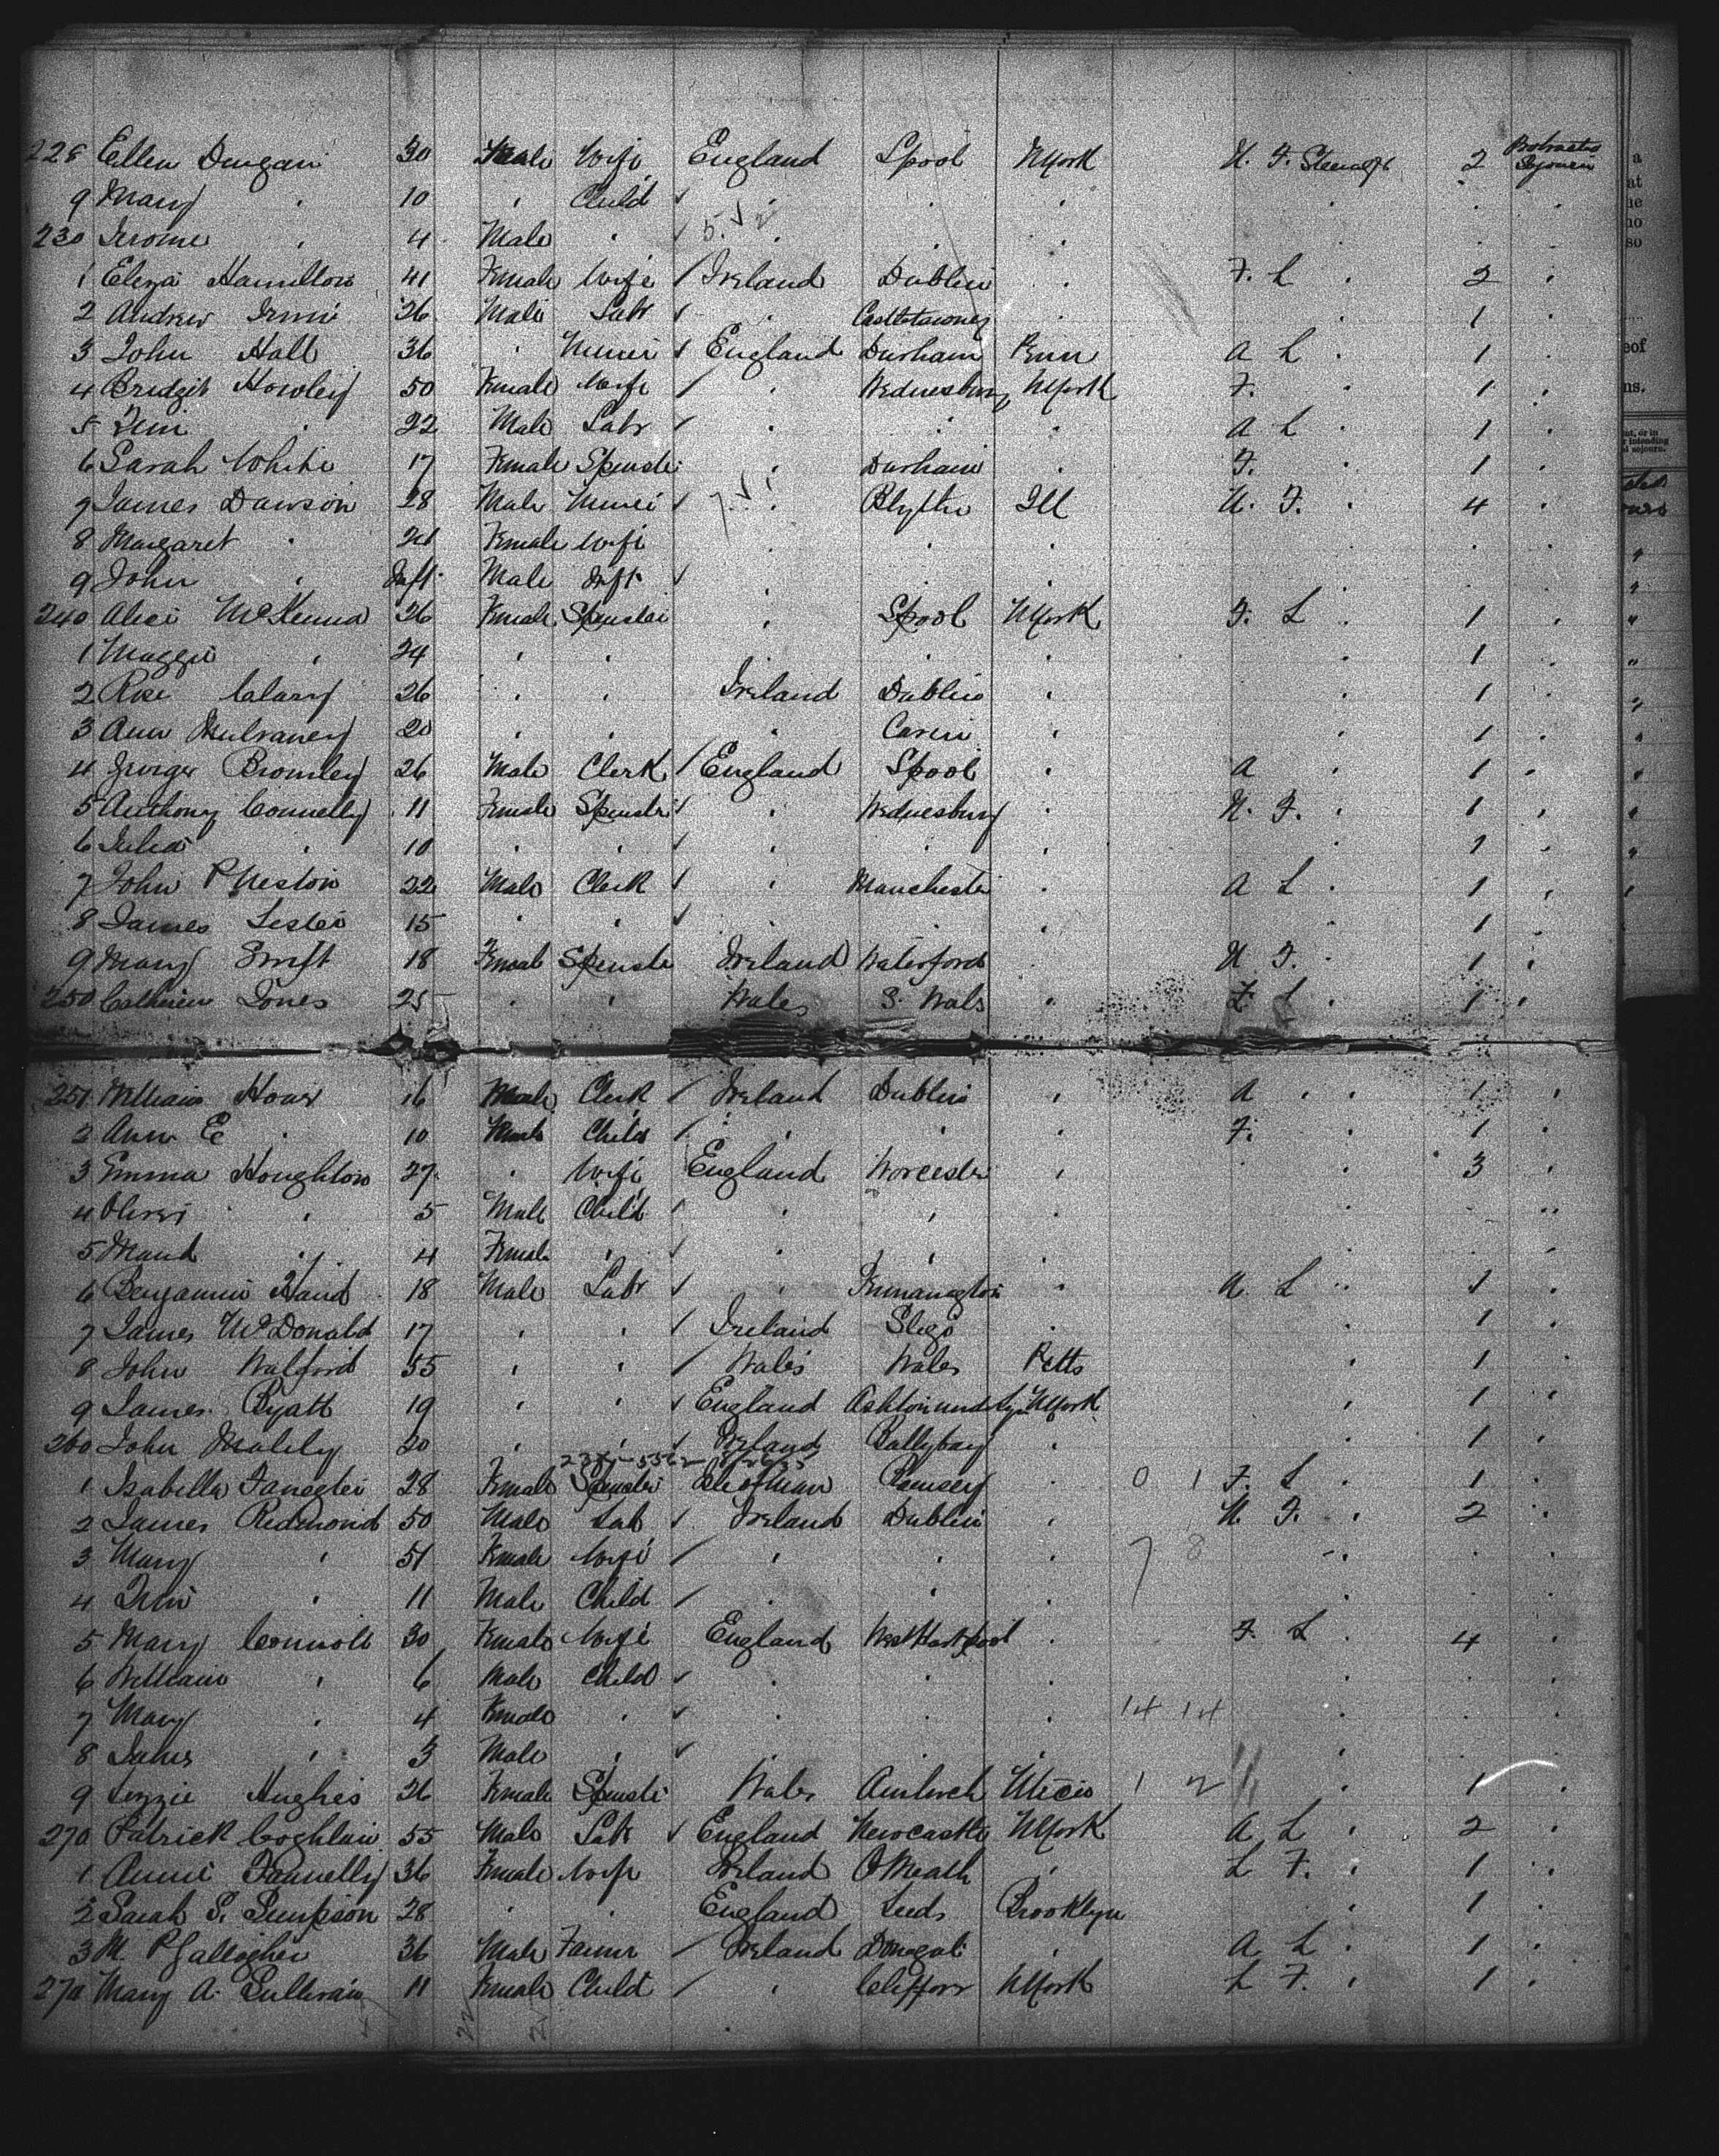 228 Ellen Dungan 30 Female Wife England Lpool NYork U. F. Steerage 2 Protracted Sojourn
9 Mary " 10 " Child
230 Jerome " 4 Male "
1 Eliza Hamilton 41 Female Wife Ireland Dublin " F. L " 2 "
2 Andrew 26 Male Labr " Castletowney " 1 "
3 John Hall 36 " Miner England Durham Penn A L " 1 "
4 Bridget Howley 50 Female Wife " Wednesbury NYork F. " 1 "
5 " 22 Male Labr " " " A L " 1 "
6 Sarah White 17 Female Spinster " Durham " F. " 1 "
7 James Dawson 28 Male Miner " Blythe Ill U. F. " 4 "
8 Margaret " 24 Female Wife " " "
9 John " Inft Male Inft " " "
240 Alice McKenna 26 Female Spinster " Lpool NYork F. L " 1 "
1 Maggie " 24 " " " " " " 1 "
2 Rose Clary 26 " " Ireland Dublin " " 1 "
3 Ann Mulvaney 20 " " " " " 1 "
4 George Bromley 26 Male Clerk England Lpool " A " 1 "
5 Anthony Connelly 11 Female Spinster " Wednesbury " U. F. " 1 "
6 Julia " 10 " " " " " " 1 "
7 John P Neston 22 Male Clerk " Manchester " A L " 1 "
8 James Lester 15 " " " " " 1 "
9 Mary Swift 18 Female Spinster Ireland Waterford U F. " 1 "
250 Catherine Jones 25 " " Wales S. Wales " F. L " 1 "
251 William Hower 16 Male Clerk Ireland Dublin " A " " 1 "
2 Ann E " 10 Female Child " " " F. " 1 "
3 Emma Houghton 27 " Wife England Worcester " " " 3 "
4 Oliver " 5 Male Child " " "
5 Maud " 4 Female " " " "
6 Benjamin Hand 18 Male Labr " " U. L " 1 "
7 James McDonald 17 " " Ireland Sligo " " 1 "
8 John Walford 55 " " Wales Wales Pitts " 1 "
9 James Ryatt 19 " " England Ashtonunderlyn NYork " 1 "
260 John 20 " " Ireland Ballybay " " 1 "
1 Isabella 28 Female Spinster Isleofman Ramsey " 0 1 F. L " 1 "
2 James Redmond 50 Male Lab Ireland Dublin " U. F. " 2 "
3 Mary " 51 Female Wife " " " 7 8
4 " 11 Male Child " " "
5 Mary Connoll 30 Female Wife England WestHartpool " F. L " 4 "
6 William " 6 Male Child " " "
7 Mary " 4 Female " " " " 14 14
8 James " 3 Male " " " "
9 Lizzie Hughes 26 Female Spinster Wales Amlwch Utica 1 2 " 1 "
270 Patrick Coghlan 55 Male Labr England Newcastle NYork A L " 2 "
1 Annie Fannelly 36 Female Wife Ireland OMeath " L F. " 1 "
2 Sarah S. Simpson 28 " " England Leeds Brooklyn " 1 "
3 M. P Gallagher 36 Male Farmer Ireland Donegal " A L " 1 "
274 Mary A. Sullivan 11 Female Child " NYork L F. " 1 "